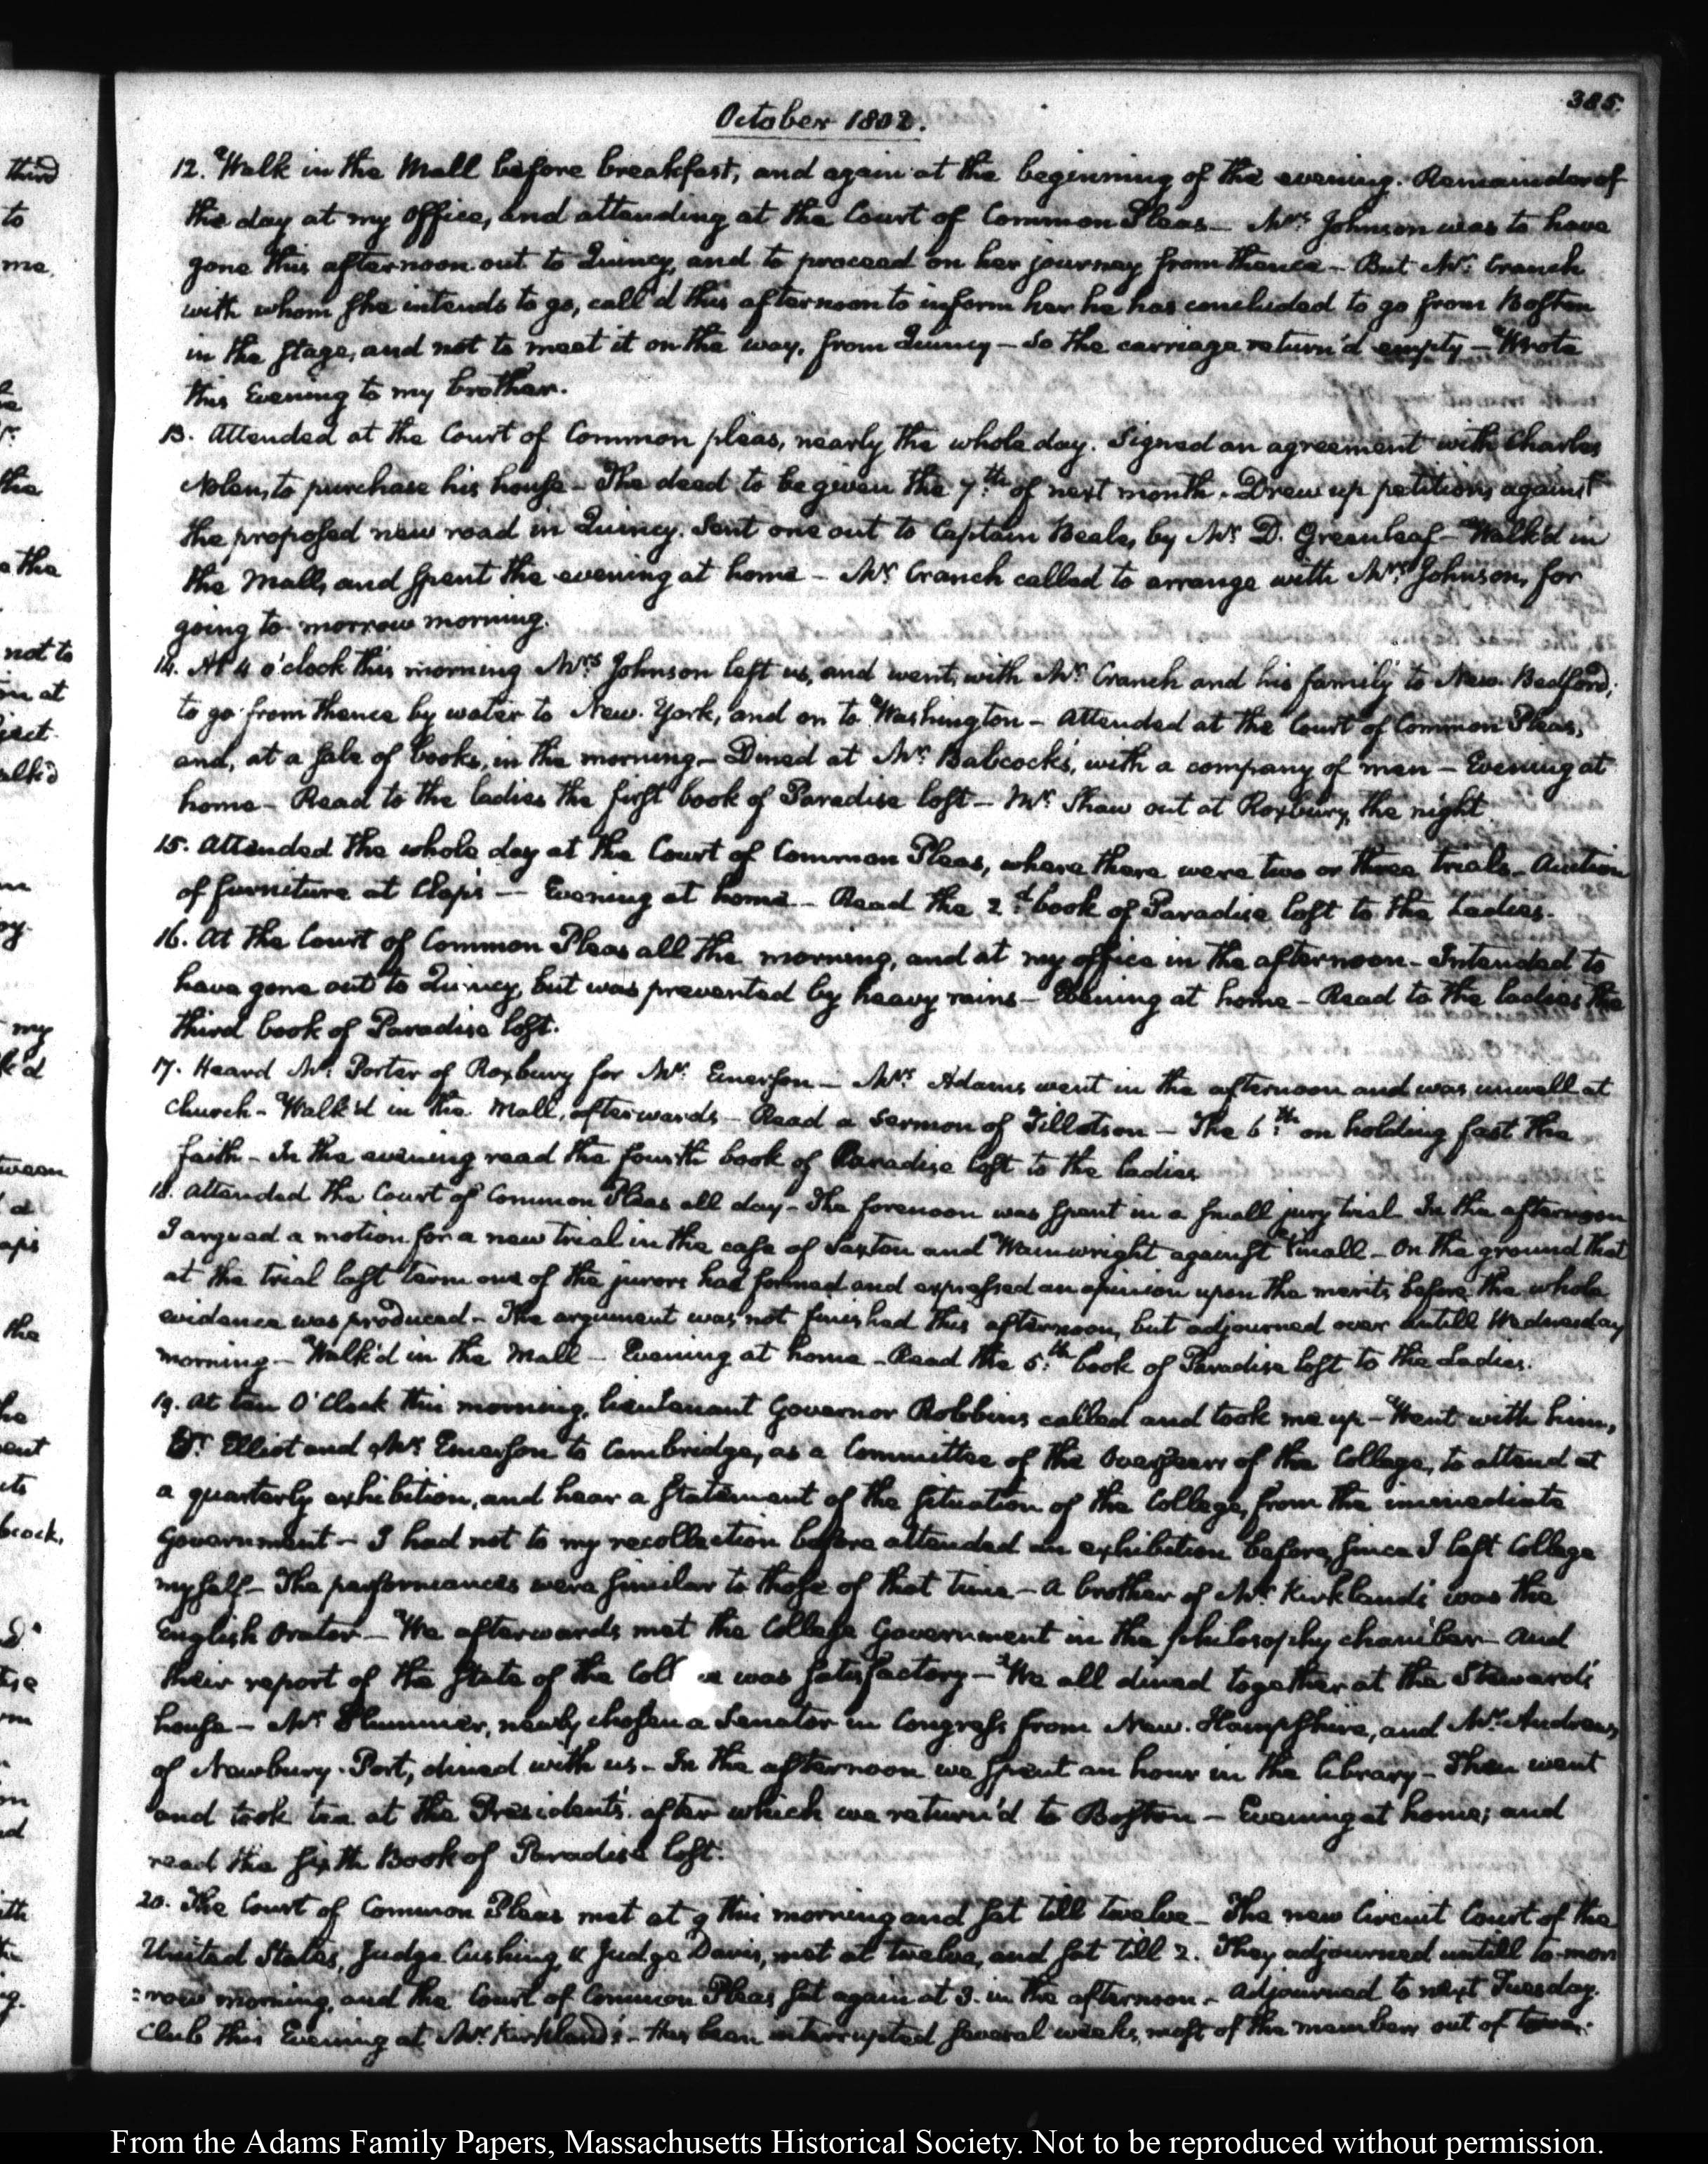 385.
October 1802.
12. Walk in the Mall before breakfast, and again at the beginning of the evening. Remainder of
the day at my Office, and attending at the Court of Common Pleas — Mrs. Johnson was to have
gone this afternoon out to Quincy, and to proceed on her journey from thence — But Mr. Cranch
with whom she intends to go, call'd this afternoon to inform her he has concluded to go from Boston
in the stage, and not to meet it on the way, from Quincy — So the carriage return'd empty — Wrote
this Evening to my brother.
13. Attended at the Court of Common pleas, nearly the whole day. Signed an agreement with Charles
Nolen, to purchase his house — The deed to be given the 7th. of next month. Drew up petitions against
the proposed new road in Quincy. Sent one out to Captain Beale, by Mr. D. Greenleaf — Walk'd in
the Mall, and spent the evening at home — Mr. Cranch called to arrange with Mrs. Johnson, for
going to-morrow morning.
14. At 4 o'clock this morning Mrs. Johnson left us, and went, with Mr. Cranch and his family to New-Bedford;
to go from thence by water to New-York, and on to Washington — Attended at the Court of Common Pleas,
and, at a sale of books, in the morning — Dined at Mr. Babcock's, with a company of men — Evening at
home — Read to the ladies the first book of Paradise lost — Mr. Shaw out at Roxbury, the night.
15. Attended the whole day at the Court of Common Pleas, where there were two or three trials — Auction
of furniture at Clap's — Evening at home — Read the 2d. book of Paradise lost to the Ladies.
16. At the Court of Common Pleas all the morning, and at my office in the afternoon — Intended to
have gone out to Quincy, but was prevented by heavy rains — Evening at home — Read to the ladies the
third book of Paradise lost.
17. Heard Mr. Porter of Roxbury for Mr. Emerson — Mrs. Adams went in the afternoon and was unwell at
Church — Walk'd in the Mall, afterwards — Read a Sermon of Tillotson — The 6th. on holding fast the
faith — In the evening read the fourth book of Paradise lost to the ladies
18. Attended the Court of Common Pleas all day — The forenoon was spent in a small jury trial. In the afternoon
I argued a motion for a new trial in the case of Saxton and Wainwright against — On the ground that
at the trial last term one of the jurors had formed and expressed an opinion upon the merits before the whole
evidence was produced — The argument was not finished this afternoon, but adjourned over untill Wednesday
morning — Walk'd in the Mall — Evening at home — Read the 5th. book of Paradise lost to the Ladies.
19. At ten O'Clock this morning, lieutenant Governor Robbins called and took me up — Went with him,
Dr. Elliot and Mr. Emerson to Cambridge, as a Committee of the Overseers of the College, to attend at
a quarterly exhibition, and hear a statement of the situation of the College, from the immediate
Government — I had not to my recollection before attended an exhibition before, since I left College
myself — The performances were similar to those of that time — A brother of Mr. Kirkland's was the
English Orator — We afterwards met the College Government in the philosophy chamber — and
their report of the state of the Coll e was satisfactory — We all dined together at the Steward's
house — Mr. Plummer, newly chosen a Senator in Congress from New-Hampshire, and Mr. Andrews,
of Newbury-Port, dined with us — In the afternoon we spent an hour in the library — Then went
and took tea at the President's: after which we return'd to Boston — Evening at home; and
read the sixth Book of Paradise lost.
20. The Court of Common Pleas met at 9 this morning and sat till twelve — The new Circuit Court of the
United States, Judge Cushing & Judge Davis, met at twelve, and sat till 2. They adjourned untill to-mor
:row morning, and the Court of Common Pleas sat again at 3. in the afternoon — Adjourned to next Tuesday.
Club this Evening at Mr. Kirkland's — Has been interrupted several weeks, most of the members out of town.
From the Adams Family Papers, Massachusetts Historical Society. Not to be reproduced without permission.